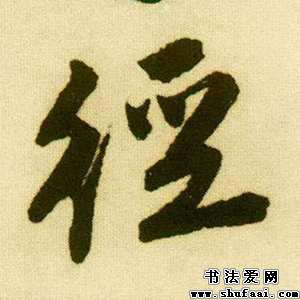 徑
书法爱网
www.shufaai.com